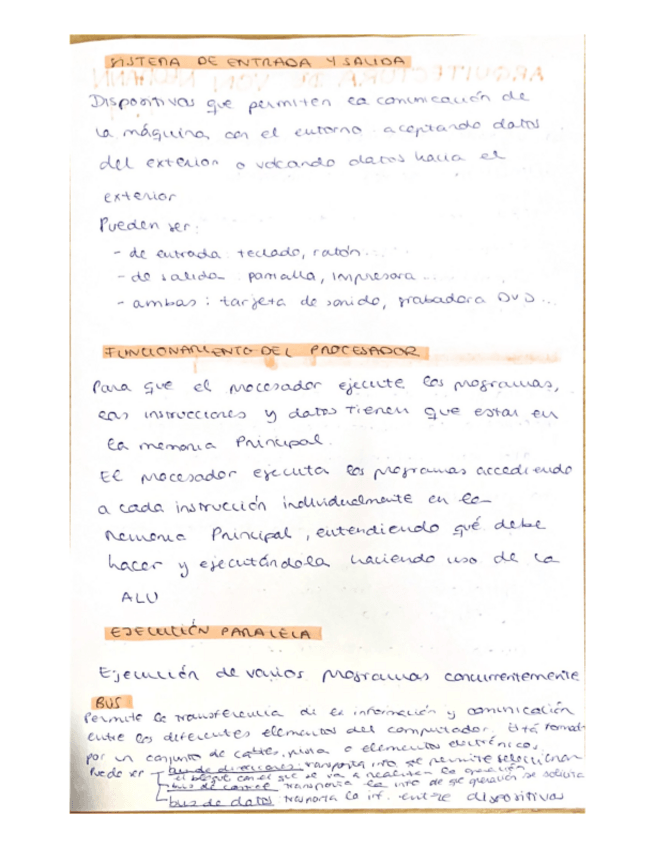 SISTEMA DE ENTRADA Y SALIDA
Dispositivos que permiten la comunicación de
la máquina con el entorno aceptando datos
del exterior o volcando datos hacia el
exterior
Pueden ser:
- de entrada: teclado, ratón...
- de salida pantalla, impresora...
- ambas: tarjeta de sonido, grabadora DVD...
FUNCIONAMIENTO DEL PROCESADOR
Para que el procesador ejecute los programas,
las instrucciones y datos tienen que estar en
la memoria Principal.
El procesador ejecuta los programas accediendo
a cada instrucción individualmente en la
Memoria Principal, entendiendo qué debe
hacer y ejecutándola haciendo uso de la
ALU
EJECUCIÓN PARALELA
Ejecución de varios programas concurrentemente
BUS
Permite la transferencia de la información y comunicación
entre los diferentes elementos del computador. Está formado
por un conjunto de cables, pista o elementos electrónicos.
Puede ser bus de direcciones: transporta info que permite seleccionar
el bloque con el que se va a realizar la operación
bus de control transporta la info de qué operación se solicita
bus de datos transporta la inf. entre dispositivos